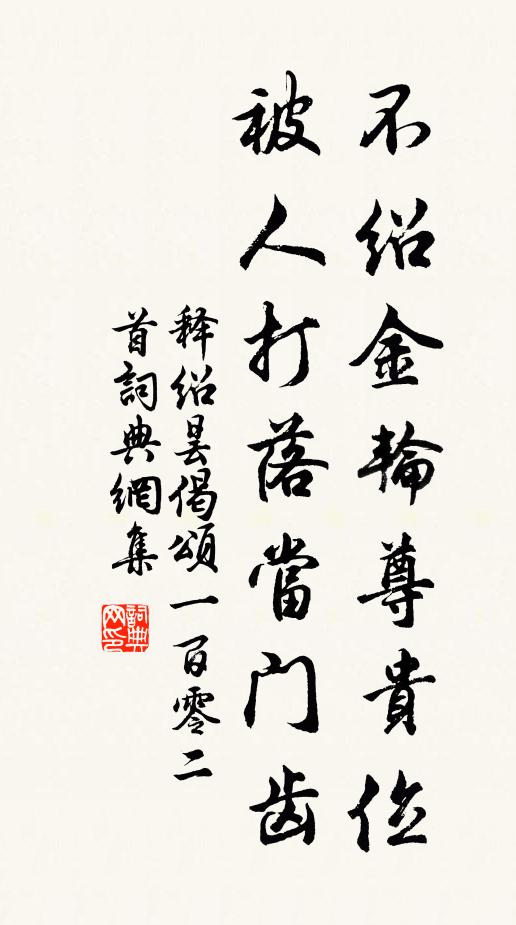 不绍金輪尊貴位
被人打落當门齿
释绍昙偈頌一百零二
首詞典網集
詞典网印